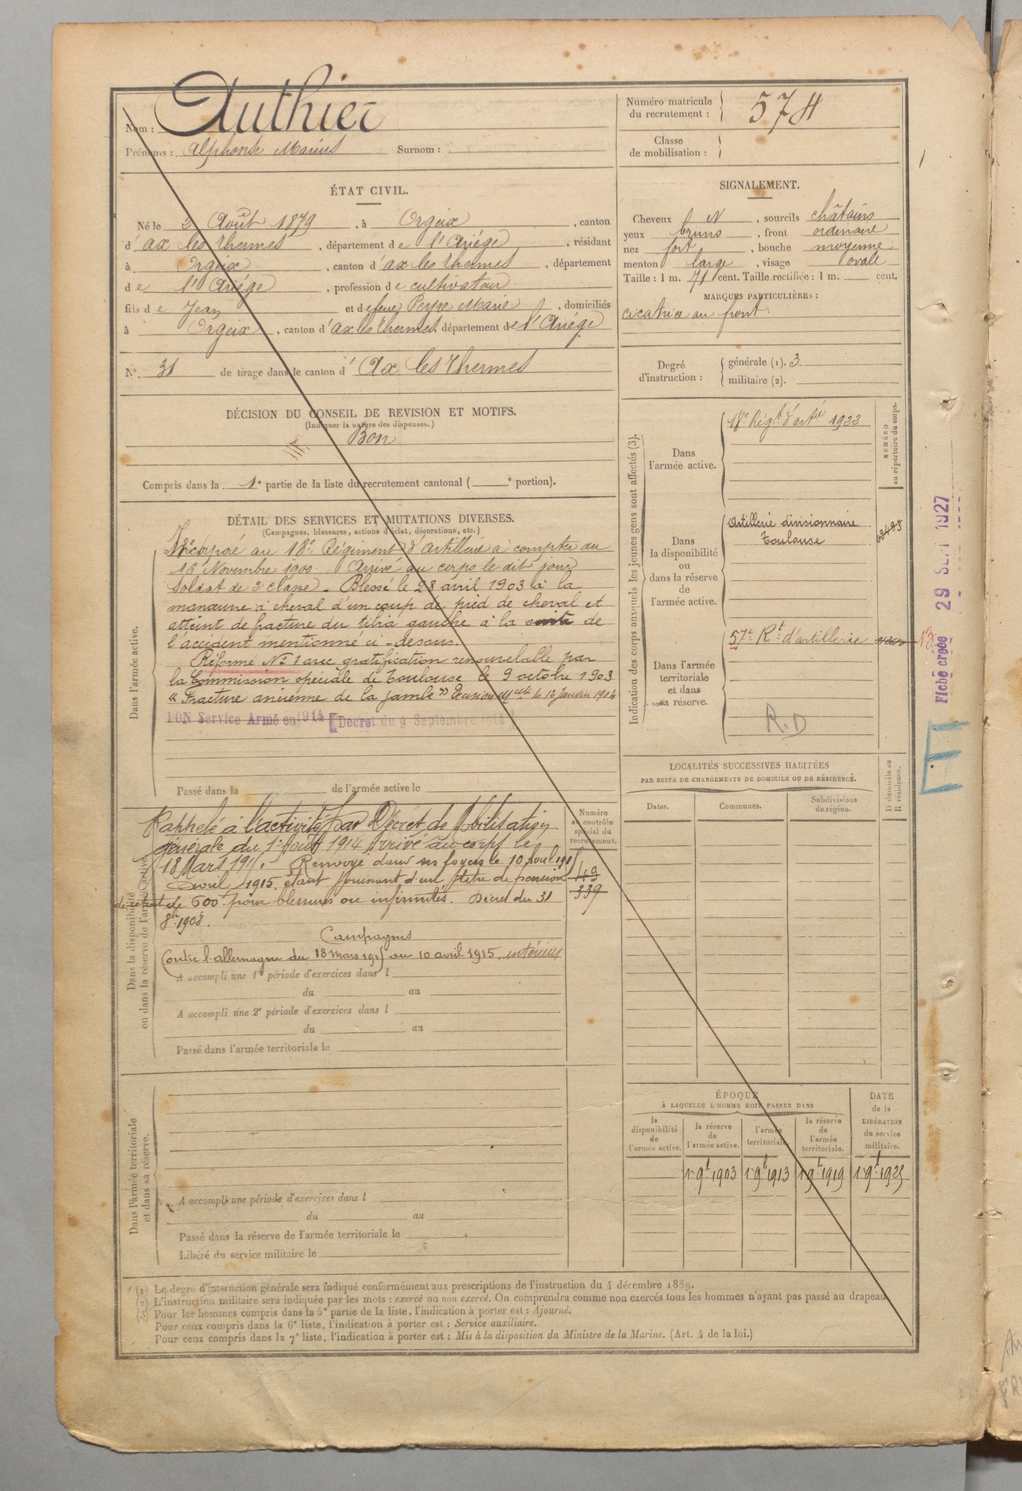 Nom : Authier
Prénoms : Alphonse Marius Surnom :
Numéro matricule du recrutement : 574
Classe de mobilisation :
ÉTAT CIVIL.
Né le 2 Août 1879, à Orgeix, canton
d'Ax les Thermes, département de l'Ariége, résidant
à Orgeix, canton d'ax les thermes, département
de l'Ariége, profession de cultivateur
fils de Jean et de feue Peyre Marie, domiciliés
à Orgeix, canton d'ax les thermes, département de l'Ariége
N° 31 de tirage dans le canton d'Ax les Thermes
DÉCISION DU CONSEIL DE REVISION ET MOTIFS.
(Indiquer la nature des dispenses.)
Bon
Compris dans la 1e partie de la liste du recrutement cantonal ( e portion).
DÉTAIL DES SERVICES ET MUTATIONS DIVERSES.
(Campagnes, blessures, actions d'éclat, décorations, etc.)
Dans l'armée active.
Incorporé au 18e Régiment d'Artillerie a compter du
16 Novembre 1900 Arrivé au corps le dit jour
Soldat de 2e classe. Blessé le 28 avril 1903 à la
manœuvre à cheval d'un coup de pied de cheval et
atteint de fracture du tibia gauche à la suite de
l'accident mentionné ci-dessus.
Réformé No 1 avec gratification renouvelable par
la Commission spéciale de Toulouse le 9 octobre 1903
"Fracture ancienne de la jambe"
BON Service Armé en 1914 Décret du 9 Septembre 1914
Passé dans la de l'armée active le
Numéro au contrôle spécial du recrutement.
149
339
Dans la disponibilité ou dans la réserve de l'armée active.
Rappelé à l'activité par Décret de Mobilisation
générale du 1er Août 1914 Arrivé au corps le
18 Mars 191 . Renvoyé dans ses foyers le 10 Avril 191
Avril 1915, étant jouissant d'un titre de pension
de retrait de 600 f pour blessures ou infirmités. Décret du 31
8bre 1908.
Campagnes
Contre l'allemagne du 18 mars 1915 au 10 avril 1915. intérieur
A accompli une 1re période d'exercices dans l
du au
A accompli une 2e période d'exercices dans l
du au
Passé dans l'armée territoriale le
Dans l'armée territoriale et dans sa réserve.
A accompli une période d'exercices dans l
du au
Passé dans la réserve de l'armée territoriale le
Libéré du service militaire le
SIGNALEMENT.
Cheveux N, sourcils châtains
yeux bruns, front ordinaire
nez fort, bouche moyenne
menton large, visage ovale
Taille : 1 m. 71 cent. Taille rectifiée : 1 m. cent.
MARQUES PARTICULIÈRES :
cicatrice au front.
Degré d'instruction :
générale (1). 3
militaire (2).
Indication des corps auxquels les jeunes gens sont affectés (3).
NUMÉRO au répertoire du corps.
Dans l'armée active.
18e Régt d'artie 1933
Dans la disponibilité ou dans la réserve de l'armée active.
Artillerie divisionnaire
Toulouse
Dans l'armée territoriale et dans sa réserve.
57e Rt d'artillerie
R.D
Fiche créée 29 SEPT 1927
LOCALITÉS SUCCESSIVES HABITÉES
PAR SUITE DE CHANGEMENTS DE DOMICILE OU DE RÉSIDENCE.
Dates. Communes. Subdivisions de région. D domicile ou R résidence.
ÉPOQUE
À LAQUELLE L'HOMME DOIT PASSER DANS
DATE de la LIBÉRATION du service militaire.
la disponibilité de l'armée active. la réserve de l'armée active. l'armée territoriale. la réserve de l'armée territoriale.
1er 9bre 1903 1er 9bre 1913 1er 9bre 1919 1er 9bre 1925
(1) Le degré d'instruction générale sera indiqué conformément aux prescriptions de l'instruction du 4 décembre 1889.
(2) L'instruction militaire sera indiquée par les mots : exercé ou non exercé. On comprendra comme non exercés tous les hommes n'ayant pas passé au drapeau.
(3) Pour les hommes compris dans la 5e partie de la liste, l'indication à porter est : Ajourné.
Pour ceux compris dans la 6e liste, l'indication à porter est : Service auxiliaire.
Pour ceux compris dans la 7e liste, l'indication à porter est : Mis à la disposition du Ministre de la Marine. (Art. 4 de la loi.)